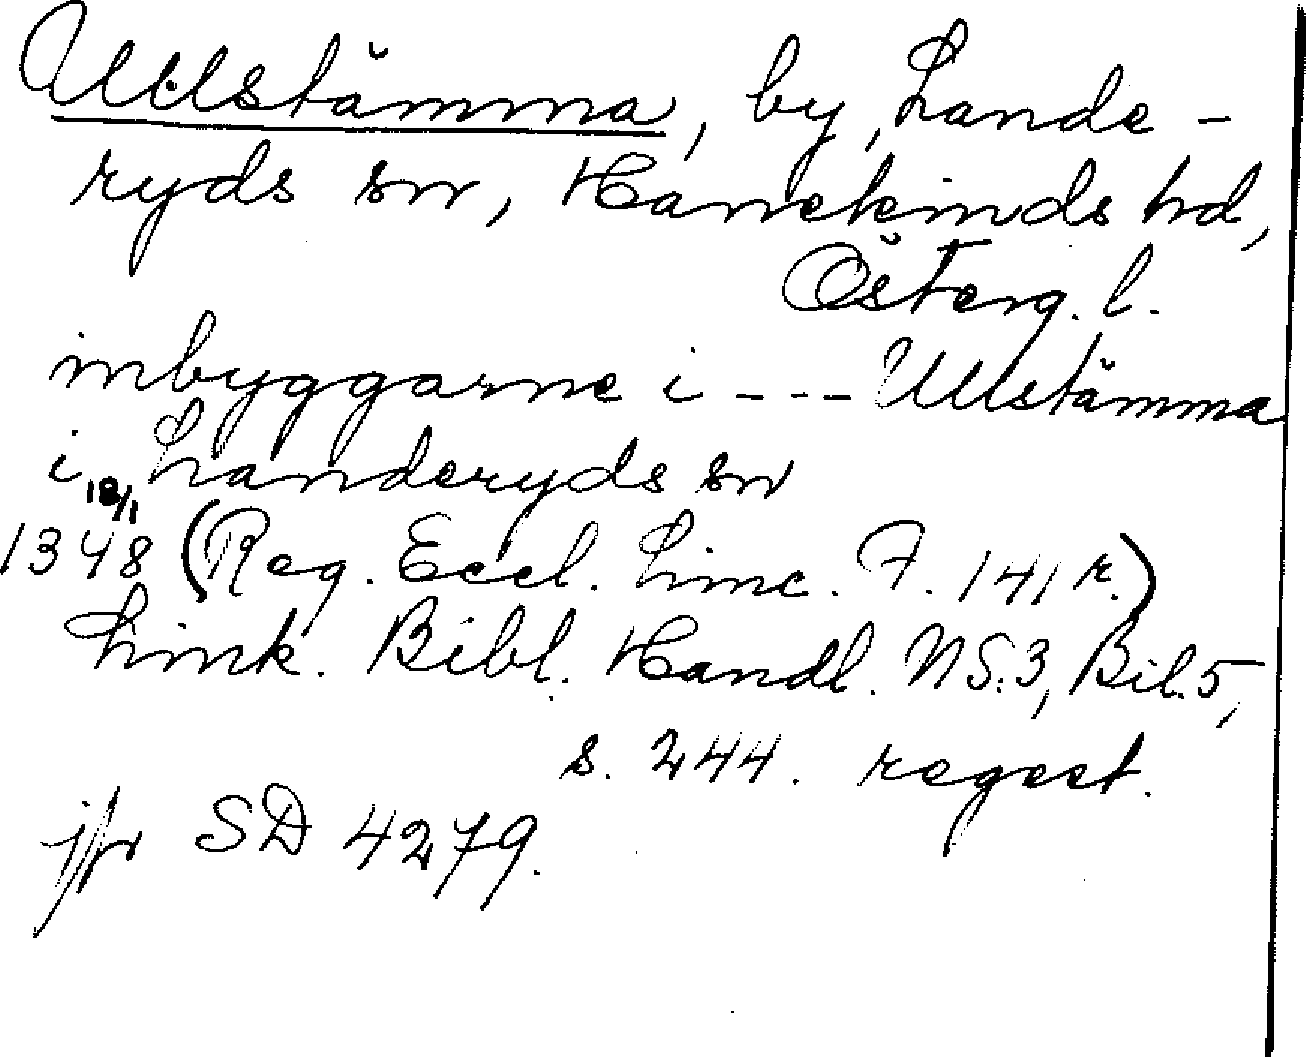 Ullstämma, by, Lande-
ryds sn, Hanekinds hd,
Österg. l.
inbyggarne i --- Ullstämma
i Landeryds sn
18/1
1348 (Reg. Eccl. Linc. F. 141 r.)
Link. Bibl. Handl. NS.3, Bil.5,
s. 244. regest.
jfr SD 4279.